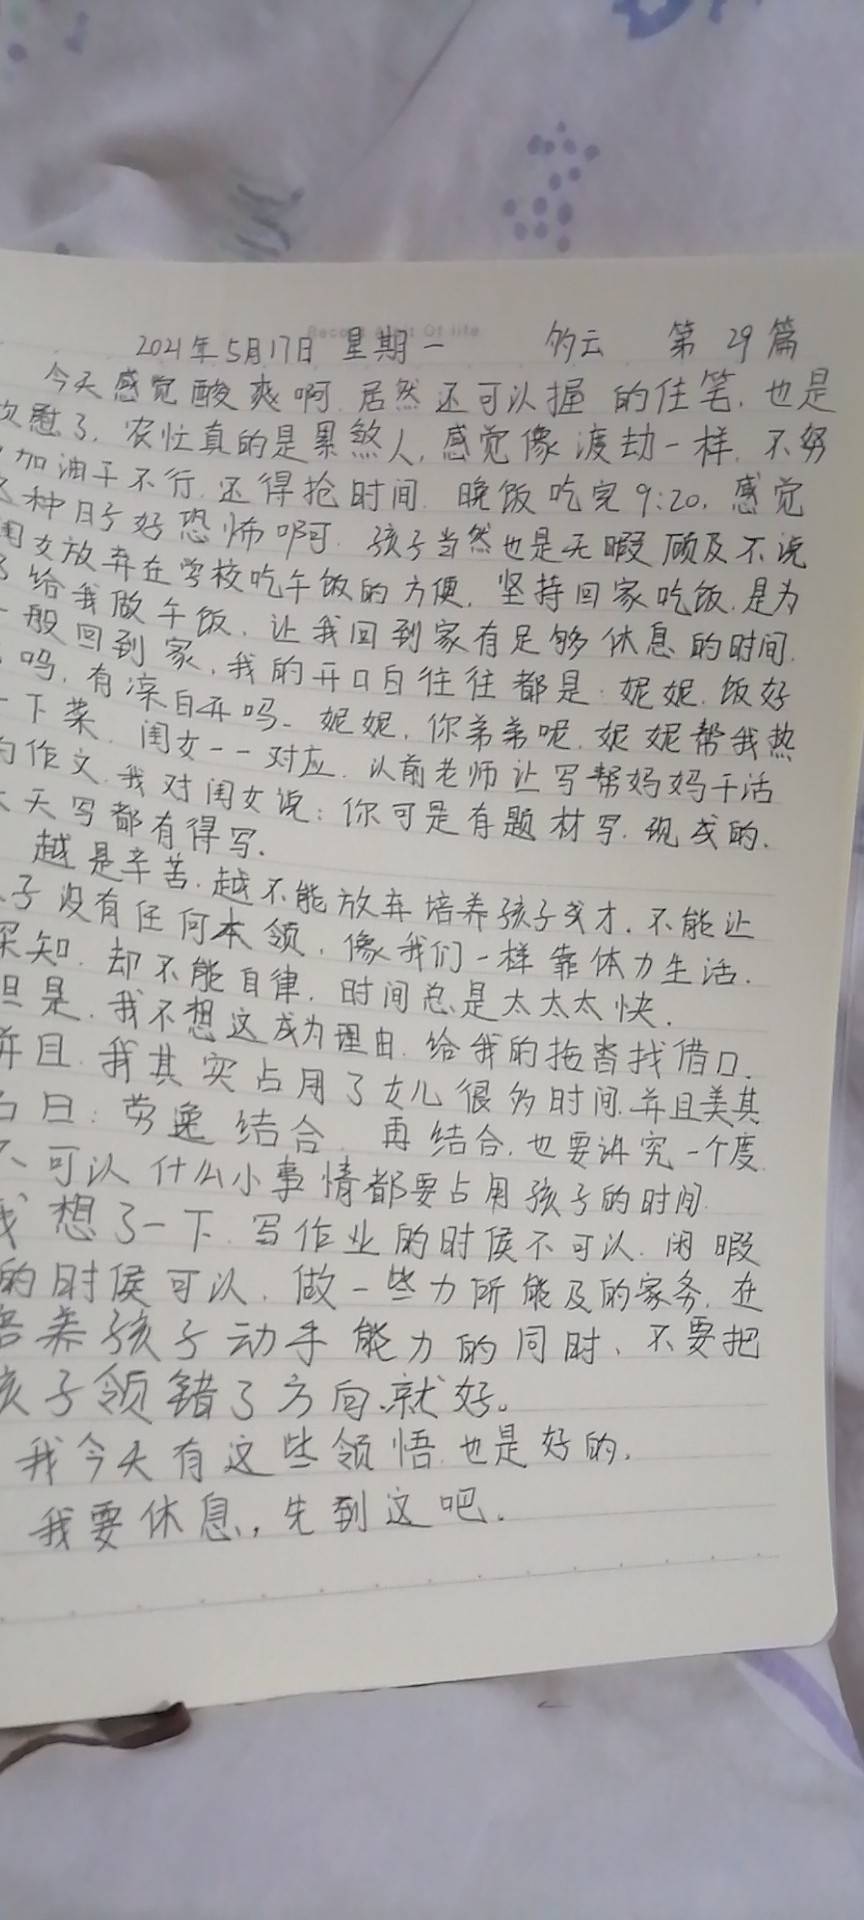 Record Of life
2021年5月17日 星期一 的云 第29篇
今天感觉酸爽啊.居然还可以握的住笔.也是
慰了.农忙真的是累煞人,感觉像渡劫一样.不努
加油干不行.还得抢时间.晚饭吃完9:20.感觉
种日子好恐怖啊可.孩子当然也是无暇顾及不说
闺女放弃在学校吃午饭的方便.坚持回家吃饭.是为
给我做午饭.让我回到家有足够休息的时间.
一般回到家,我的开口白往往都是.妮妮.饭好
吗.有凉白开吗.妮妮,你弟弟呢.妮妮帮我热
一下菜.闺女一一对应.以前老师让写帮妈妈干活
的作文.我对闺女说:你可是有题材写.现成的.
天天写都有得写.
越是辛苦.越不能放弃培养孩子成才.不能让
子没有任何本领,像我们一样靠体力生活.
深知.却不能自律.时间总是太太太快.
但是.我不想这成为理由.给我的拖沓找借口.
并且.我其实占用了女儿很多时间.并且美其
名曰:劳逸结合.再结合.也要讲究一个度
不可以什么小事情都要占用孩子的时间.
我想了一下.写作业的时候不可以.闲暇
的时候可以.做一些力所能及的家务.在
培养孩子动手能力的同时、不要把
孩子领错了方向.就好。
我今天有这些领悟.也是好的.
我要休息,先到这吧.